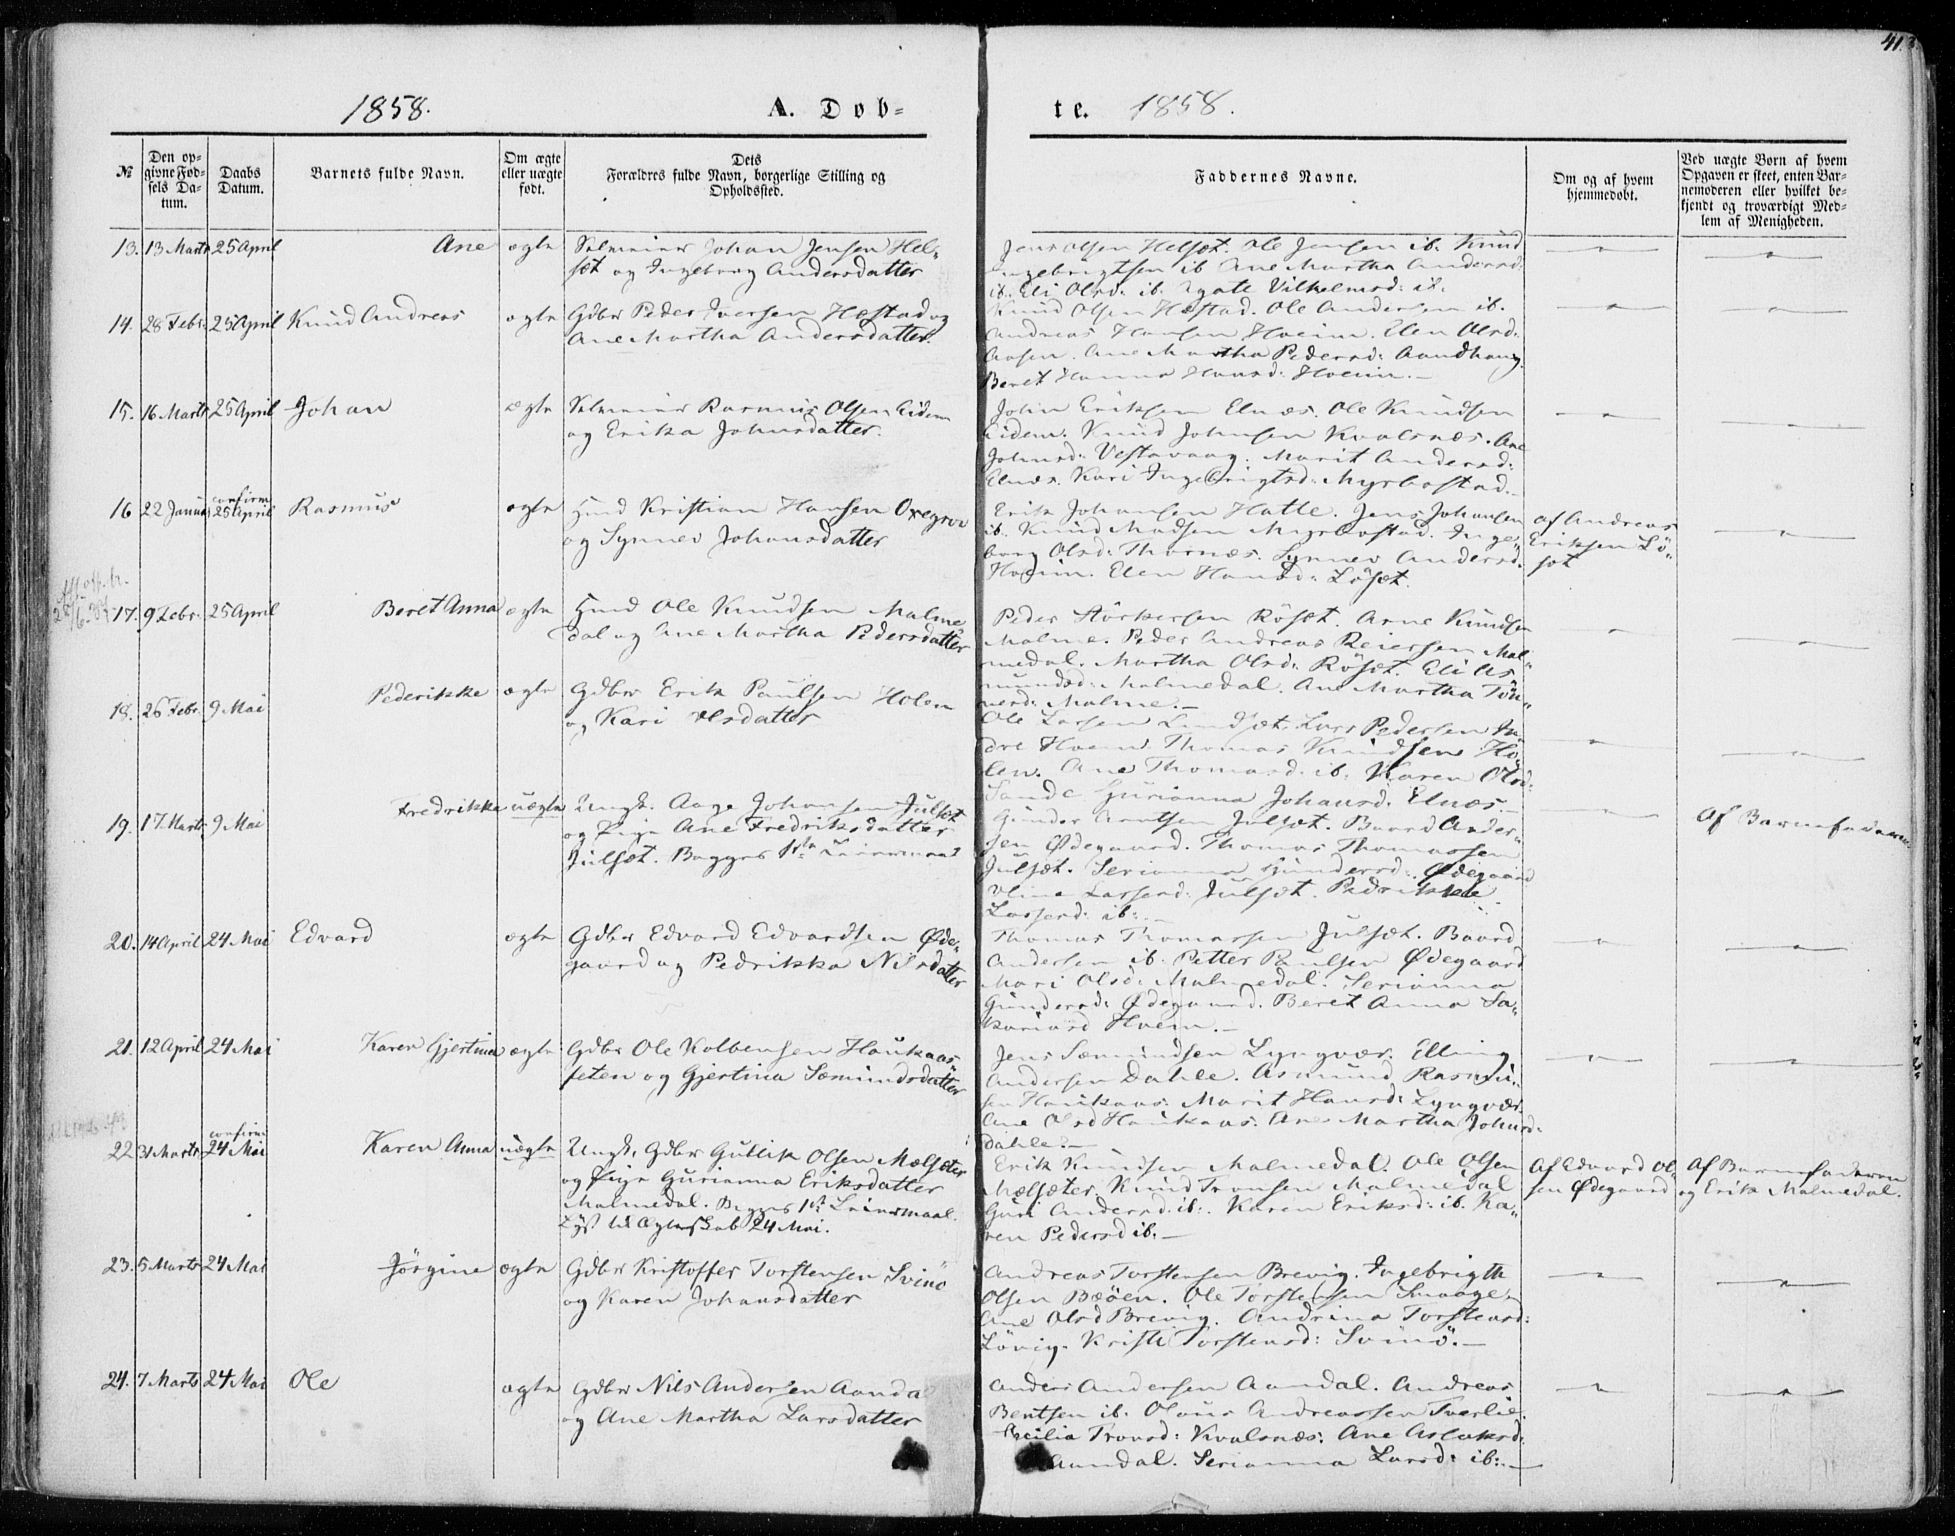 41.
1858. A. Döb=
te. 1858.
№
Den op=
givne Fød=
sels Da=
tum.
Daabs
Datum.
Barnets fulde Navn.
Om ægte
eller uægte
født.
Dets
Forældres fulde Navn, borgerlige Stilling og
Opholdssted.
Faddernes Navne.
Om og af hvem
hjemmedøbt.
Ved uægte Børn af hvem
Opgaven er skeet, enten Bar=
nemoderen eller hvilket be=
kjendt og troværdigt Med=
lem af Menigheden.
13. 13 Marts 25 April Ane ægte Selveier Johan Jensen Hel=
sæt og Ingeborg Andersdatter
Jens Olsen Helsæt. Ole Jensen ib. Knud
Ingebrigtsen ib Ane Martha Andersd:
ib. Eli Olsd: ib. Vilhelmsd: ib.
14. 28 Febr. 25 April Knud Andreas ægte Gdbr Peder Iversen Hæstad og
Ane Martha Andersdatter.
Knud Olsen Hæstad. Ole Andersen ib.
Andreas Hansen Hoeim. Elen Olsd:
Ane Martha Pedersd: Aandhaug.
Beret Hanna Hansd: Hoeim.—
15. 16 Marts 25 April Johan ægte Selveier Rasmus Olsen Eidem
og Erika Johnsdatter.
John Eriksen Elnæs. Ole Knudsen
Eidem. Knud Johnsen Kvalsnæs. Ane
Johnsd: Vestavaag. Marit Andersd:
Elnæs. Kari Ingebrigtsd: Myrbostad.—
16 22 Januar confirm
25 April Rasmus ægte Huusmd Kristian Hansen
og Synnev Johansdatter
Erik Johansen Hatle. Jens Johansen
ib. Knud Madsen Myrbostad. Inge=
borg Olsd: Thornæs. Synnev Andersd.
Hoeim. Elen Hansd: Løset.
af Andreas
Eriksen Lö=
set
17. 9 Febr. 25 April Beret Anna ægte Huusmd Ole Knudsen Malme
dal og Ane Martha Pedersdatter
Peder Røset. Arne Knudsen
Malme. Peder Andreas Reiersen Mal=
medal. Martha Olsd: Röset. Eli As
mundsd: Malmedal. Ane Martha Tön=
nesd: Malme.—
18. 26 Febr. 9 Mai Pederikke ægte Gdbr Erik Paulsen Holen
og Kari Olsdatter
Ole Larsen Lindset. Lars Pedersen In
dre Hoem. Thomas Knudsen Ho
len. Ane Thomasd: ib. Karen Olsd:
Sande Gurianna Johansd. Elnæs.—
19. 17 Marts 9 Mai Fredrikke uægte Ungk. Aage Johansen Julset
og Pige Ane Fredriksdatter
Julsæt. Begges 1ste Leiermaal
Gunder Julsæt. Baard Ander=
sen Ødegaard. Thomas Thomassen
Julsæt. Serianna Gundersd: Ødegaard
Larsesd: Julsæt. Pedrikke
Larsesd: ib:—
Af Barnefaderen.
20. 14 April 24 Mai Edvard ægte Gdbr Edvard Edvardsen Øde=
gaard og Pedrikka Nilsdatter
Thomas Thomassen Julsæt. Baard
Andersen ib. Petter Paulsen Ødegaard
Mari Olsd: Malmedal. Serianna
Gundersd: Ødegaard. Beret Anna Sa=
kariasd Hoem.—
21. 12 April 24 Mai Karen Gjertina ægte Gdbr Ole Kolbensen Haukaas
seten og Gjertina Sæmundsdatter
Jens Sæmundsen Lyngvær. Elling
Andersen Dahle. Asmund Rasmu=
sen Haukaas. Marit Hansd: Lyngvær.
Ane Olsd Haukaas. Ane Martha Johnsd:
Dahle.—
22 31 Marts confirm.
24 Mai Karen Anna uægte Ungk. Gdbr Gullik Olsen Mælsæter
og Pige Gurianna Eriksdatter
Malmedal. Begges 1ste Leiermaal.
Lyst til Ægteskab 24 Mai.
Erik Knudsen Malmedal. Ole Olsen
Mælsæter. Knud Tronsen Malmedal
Guri Andersd. ib. Karen Eriksd: ib. Ka=
ren Pedersd ib.—
Af Edvard Ol=
sen Ødegaard
Af Barnefaderen
og Erik Malmedal.
23. 5 Marts 24 Mai Jörgine ægte Gdbr Kristoffer Torstensen Svinö
og Karen Johansdatter
Andreas Torstensen Brevig. Ingebrigth
Olsen Bæöen. Ole Torstensen Smaage.
Ane Olsd Brevig. Andrina Torstensd:
Lövig. Kristi Torstensd: Svinö.—
24. 7 Marts 24 Mai Ole ægte Gdbr Nils Andersen Aanda
og Ane Martha Larsdatter
Anders Andersen Aandal. Andreas
Bentsen ib. Olaus Andreassen Tverlie.
Cecilia Tronsd: Kvalsnæs. Ane Aslaksd:
Aandal. Serianna Larsd: ib:—